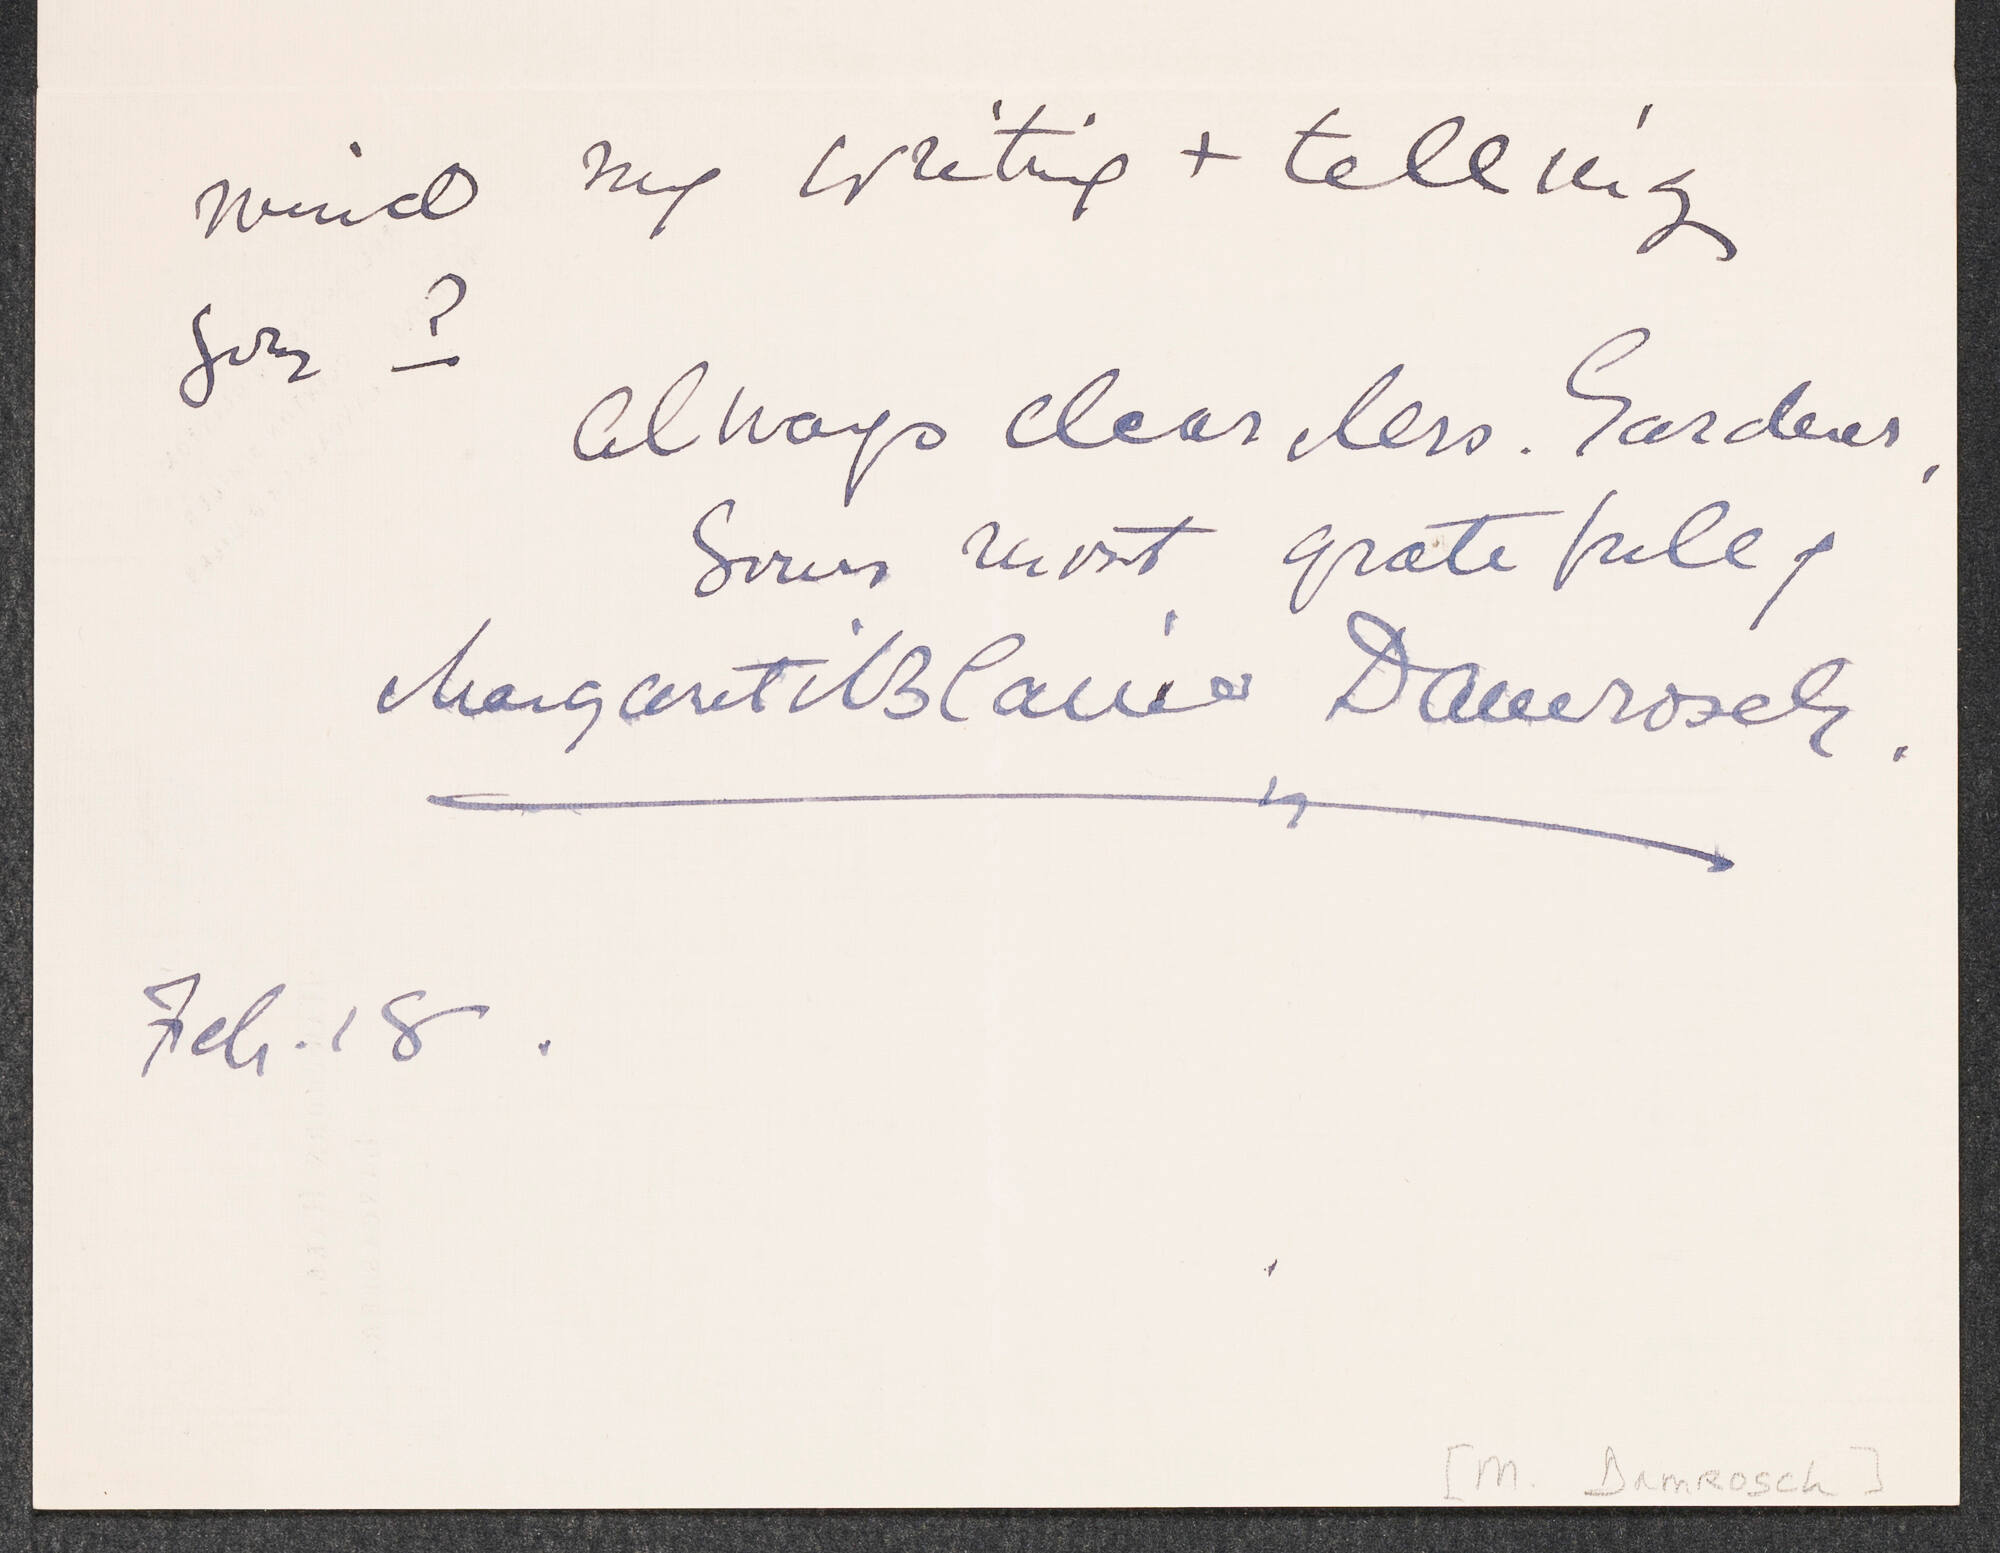 mind my writing + telling
you?
Always dear Mrs. Gardner,
Yours most gratefully
Margaret Blaine Damrosch.
Feb. 18.
[M. Damrosch]